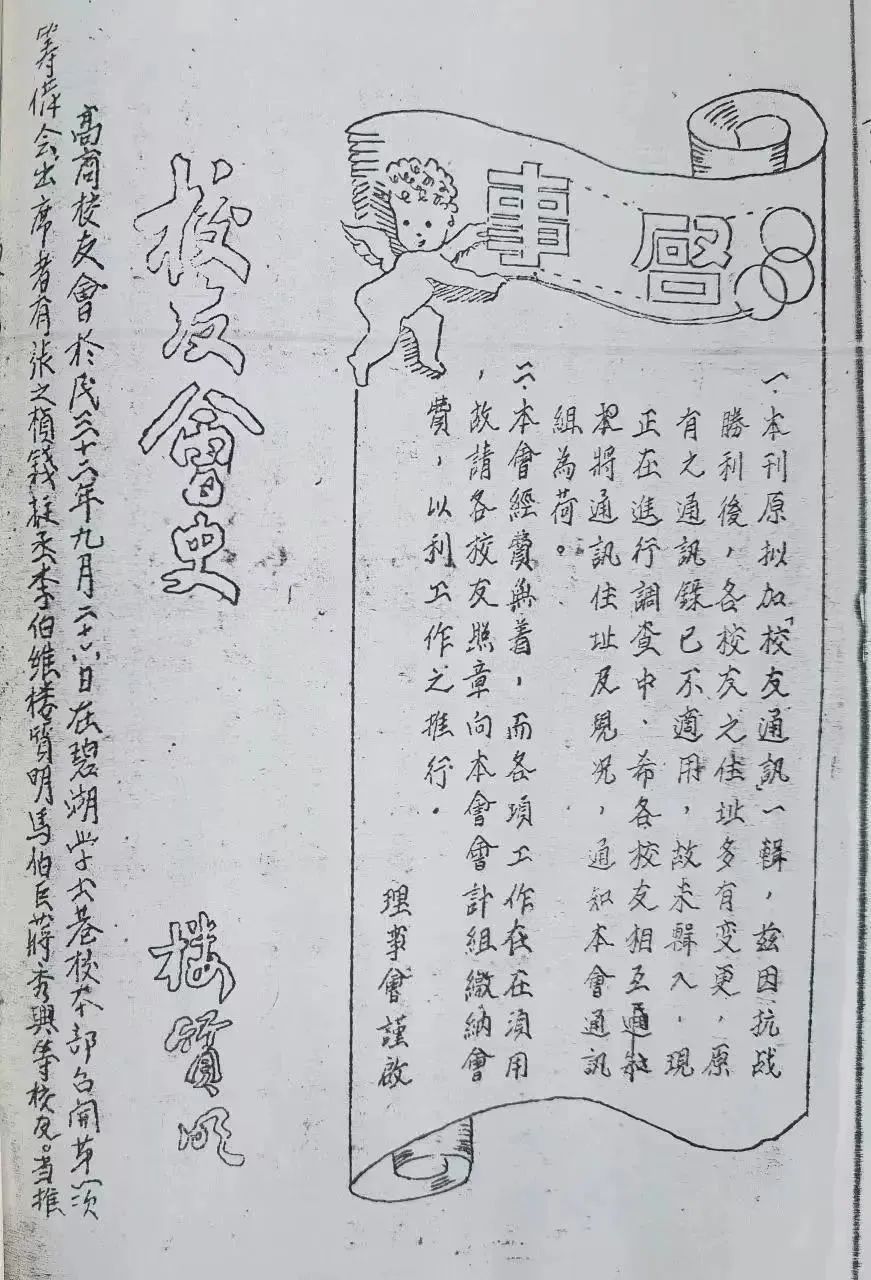 啓事
一、本刊原拟加「校友通訊」一輯，兹因抗战
勝利後，各校友之住址多有变更，原
有之通訊錄已不適用，故未輯入，現
正在進行調查中、希各校友相互通知
將通訊住址及現况，通知本會通訊
組為荷。
二、本會經費無着，而各項工作在在須用
，故請各校友照章向本會會計組繳納會
費，以利工作之推行。
理事會謹啟
校友會史
樓質明
高商校友會於民三十六年九月二十六日在碧湖学士巷校本部召開第一次
筹備会出席者有張之楨錢 李伯維楼質明馬伯 蔣秀興等校友。当推